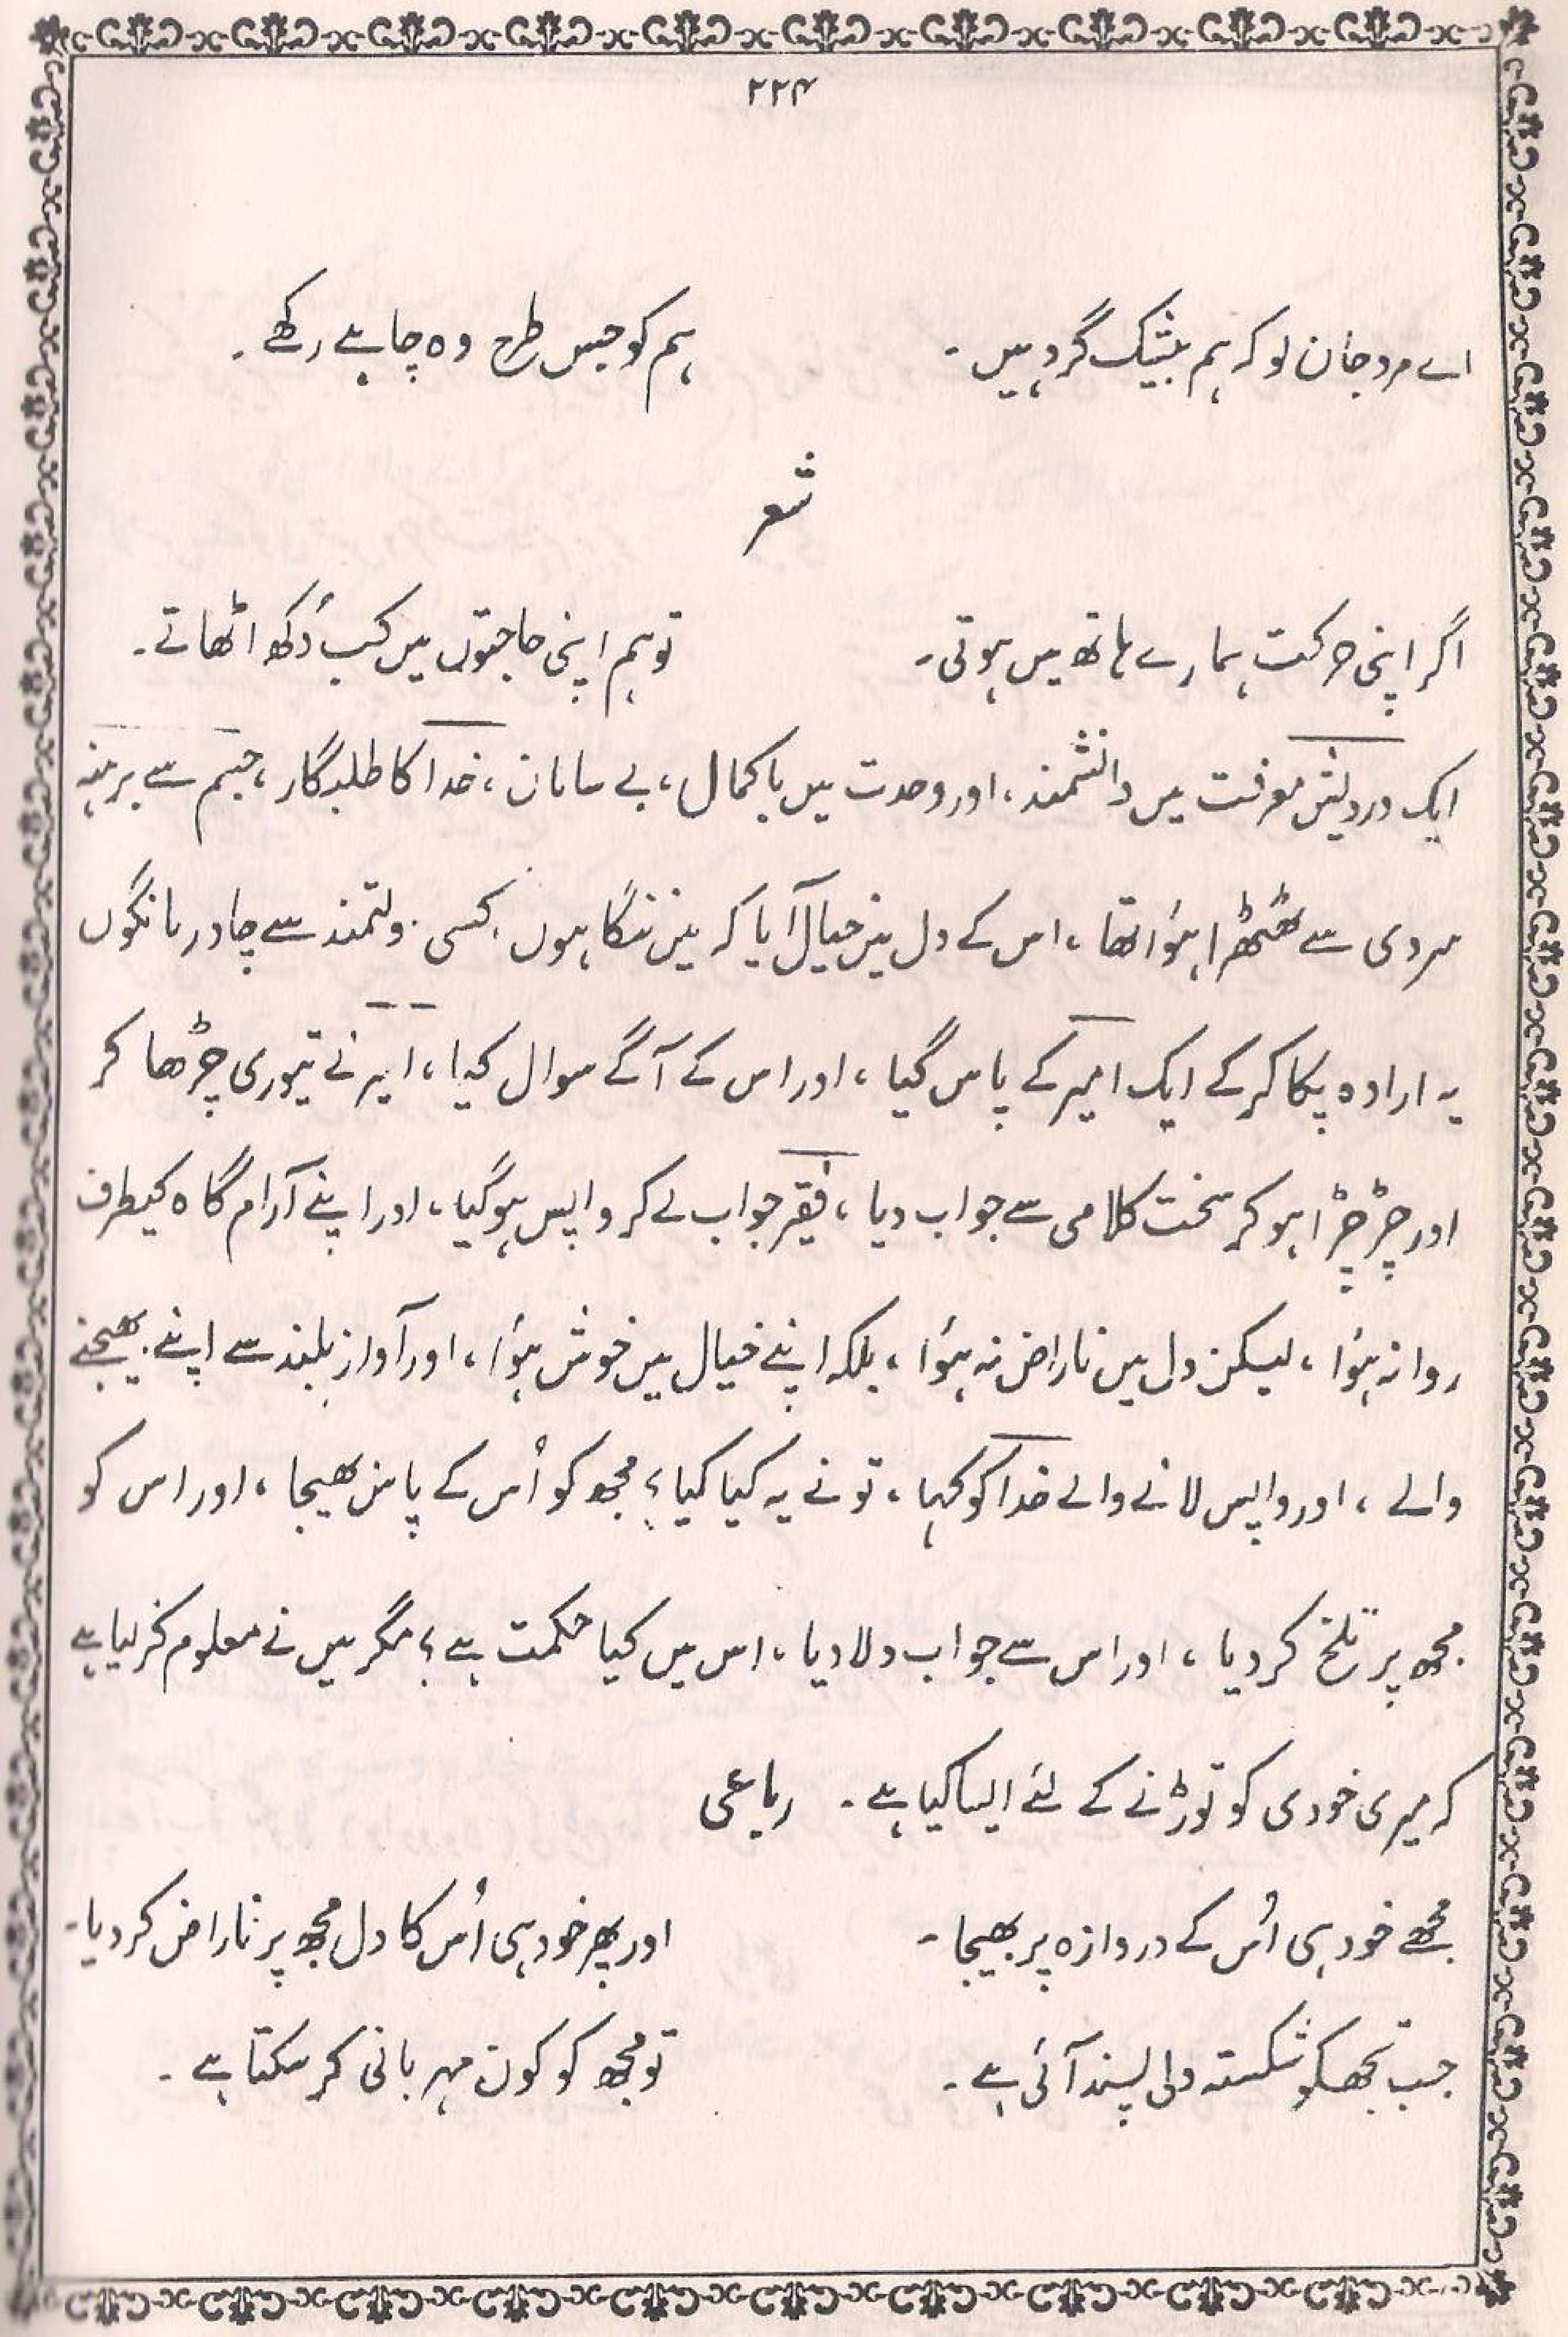 ۲۲۴
اے مرد جان لو کہ ہم بیشک گرد ہیں۔ ہم کو جس طرح وہ چاہے رکھے۔
شعر
اگر اپنی حرکت ہمارے ہاتھ میں ہوتی۔ تو ہم اپنی حاجتوں میں کب دُکھ اٹھاتے۔
ایک درویش معرفت میں دانشمند، اور وحدت میں باکمال، بے سامان، خدا کا طلبگار، جسم سے برہنہ
سردی سے ٹھٹھرا ہؤا تھا، اس کے دل میں خیال آیا کہ میں ننگا ہوں۔ کسی دولتمند سے چادر مانگوں
یہ ارادہ پکا کر کے ایک امیر کے پاس گیا، اور اس کے آگے سوال کیا، امیر نے تیوری چڑھا کر
اور چڑچڑا ہو کر سخت کلامی سے جواب دیا، فقیر جواب لے کر واپس ہو گیا، اور اپنے آرام گاہ کیطرف
روانہ ہؤا، لیکن دل میں ناراض نہ ہؤا، بلکہ اپنے خیال میں خوش ہؤا، اور آواز بلند سے اپنے بھیجنے
والے، اور واپس لانے والے خدا کو کہا، تو نے یہ کیا کیا؟ مجھ کو اُس کے پاس بھیجا، اور اس کو
مجھ پر تلخ کر دیا، اور اس سے جواب دلا دیا، اس میں کیا حکمت ہے؟ مگر میں نے معلوم کر لیا ہے
کہ میری خودی کو توڑنے کے لئے ایسا کیا ہے۔ رباعی
مجھے خود ہی اُس کے دروازہ پر بھیجا۔ اور پھر خود ہی اُس کا دل مجھ پر ناراض کر دیا۔
جب تجھکو شکستہ دلی پسند آئی ہے۔ تو مجھ کو کون مہربانی کر سکتا ہے۔